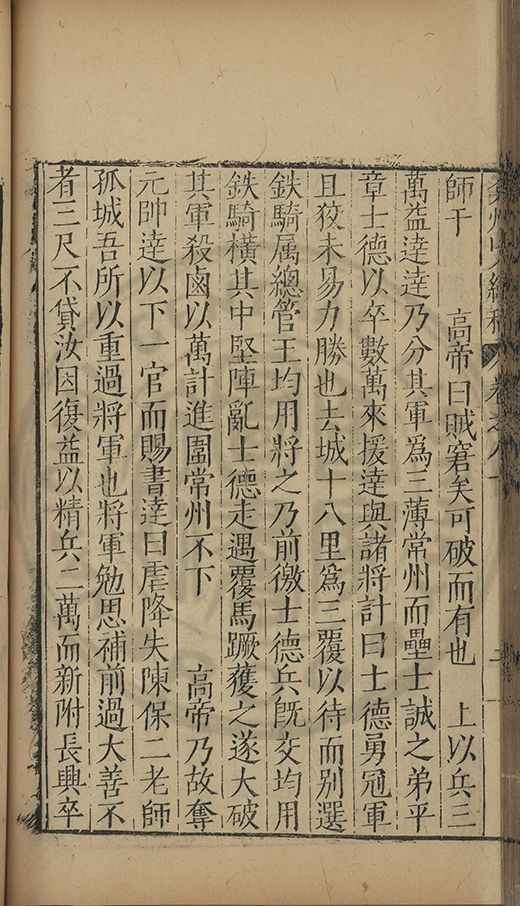 州 續稿 卷之八十
師于 高帝曰賊窘矣可破而有也 上以兵三
萬益達達乃分其軍爲三薄常州而壘士誠之弟平
章士德以卒數萬來援達與諸將計曰士德勇冠軍
且狡未易力勝也去城十八里爲三覆以待而別選
鉄騎属總管王均用將之乃前徼士德兵旣交均用
鉄騎橫其中堅陣亂士德走遇覆馬蹶獲之遂大破
其軍殺鹵以萬計進圍常州不下 高帝乃故奪
元帥達以下一官而賜書達曰虐降失陳保二老師
孤城吾所以重過將軍也將軍勉思補前過大善不
者三尺不貸汝因復益以精兵二萬而新附長興卒